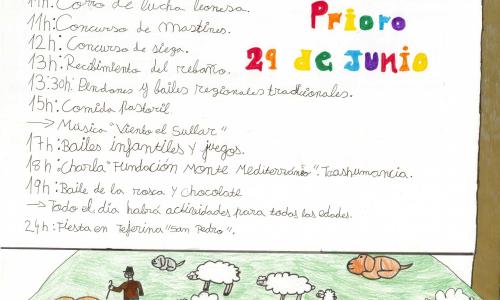 11h: Corro de lucha leonesa.
11h: Concurso de Mastines.
12h: Concurso de siega.
13h: Recibimiento del rebaño.
13:30h: Pendones y bailes regionales tradicionales.
15h: Comida Pastoril.
→ Musica "Viento el Sullar"
17h: Bailes infantiles y juegos.
18h: Charla "Fundación Monte Mediterráneo". Trashumancia.
19h: Baile de la rosca y Chocolate
→ Todo el día habrá actividades para todas las edades.
24h: Fiesta en Tejerina "San Pedro".
Prioro
29 de Junio